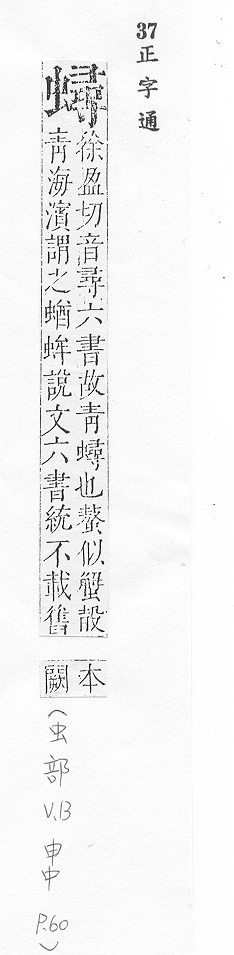 37正字通
蟳
徐盈切音尋六書故青蟳也螯似蟹殼
青海濱謂之蝤蛑說文六書統不載舊
本
闕
(虫部 V.13 申中 P.60)